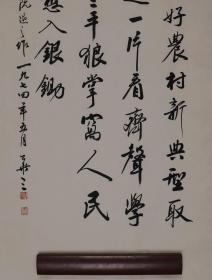 好農村新典型取
近一片看齊聲學
三年狼掌窩人民
想入銀鋤
一九七四年五月